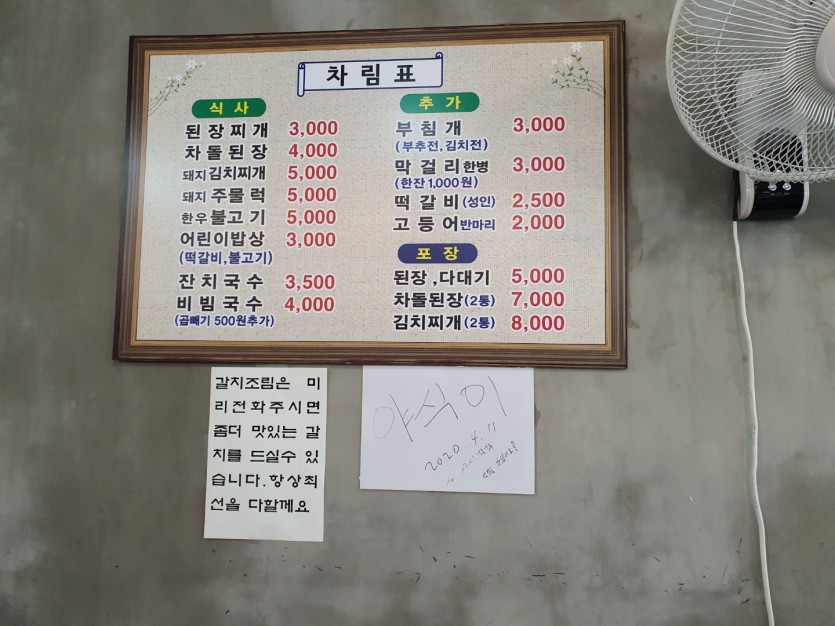 차림표
식사
된장찌개 3,000
차돌된장 4,000
돼지김치찌개 5,000
돼지주물럭 5,000
한우불고기 5,000
어린이밥상 3,000
(떡갈비,불고기)
잔치국수 3,500
비빔국수 4,000
(곱빼기 500원추가)
추가
부침개 3,000
(부추전,김치전)
막걸리한병 3,000
(한잔1,000원)
떡갈비(성인) 2,500
고등어반마리 2,000
포장
된장,다대기 5,000
차돌된장(2통) 7,000
김치찌개(2통) 8,000
갈치조림은 미
리전화주시면
좀더 맛있는 갈
치를 드실수 있
습니다.항상최
선을 다할께요
야식이
2020.4.11